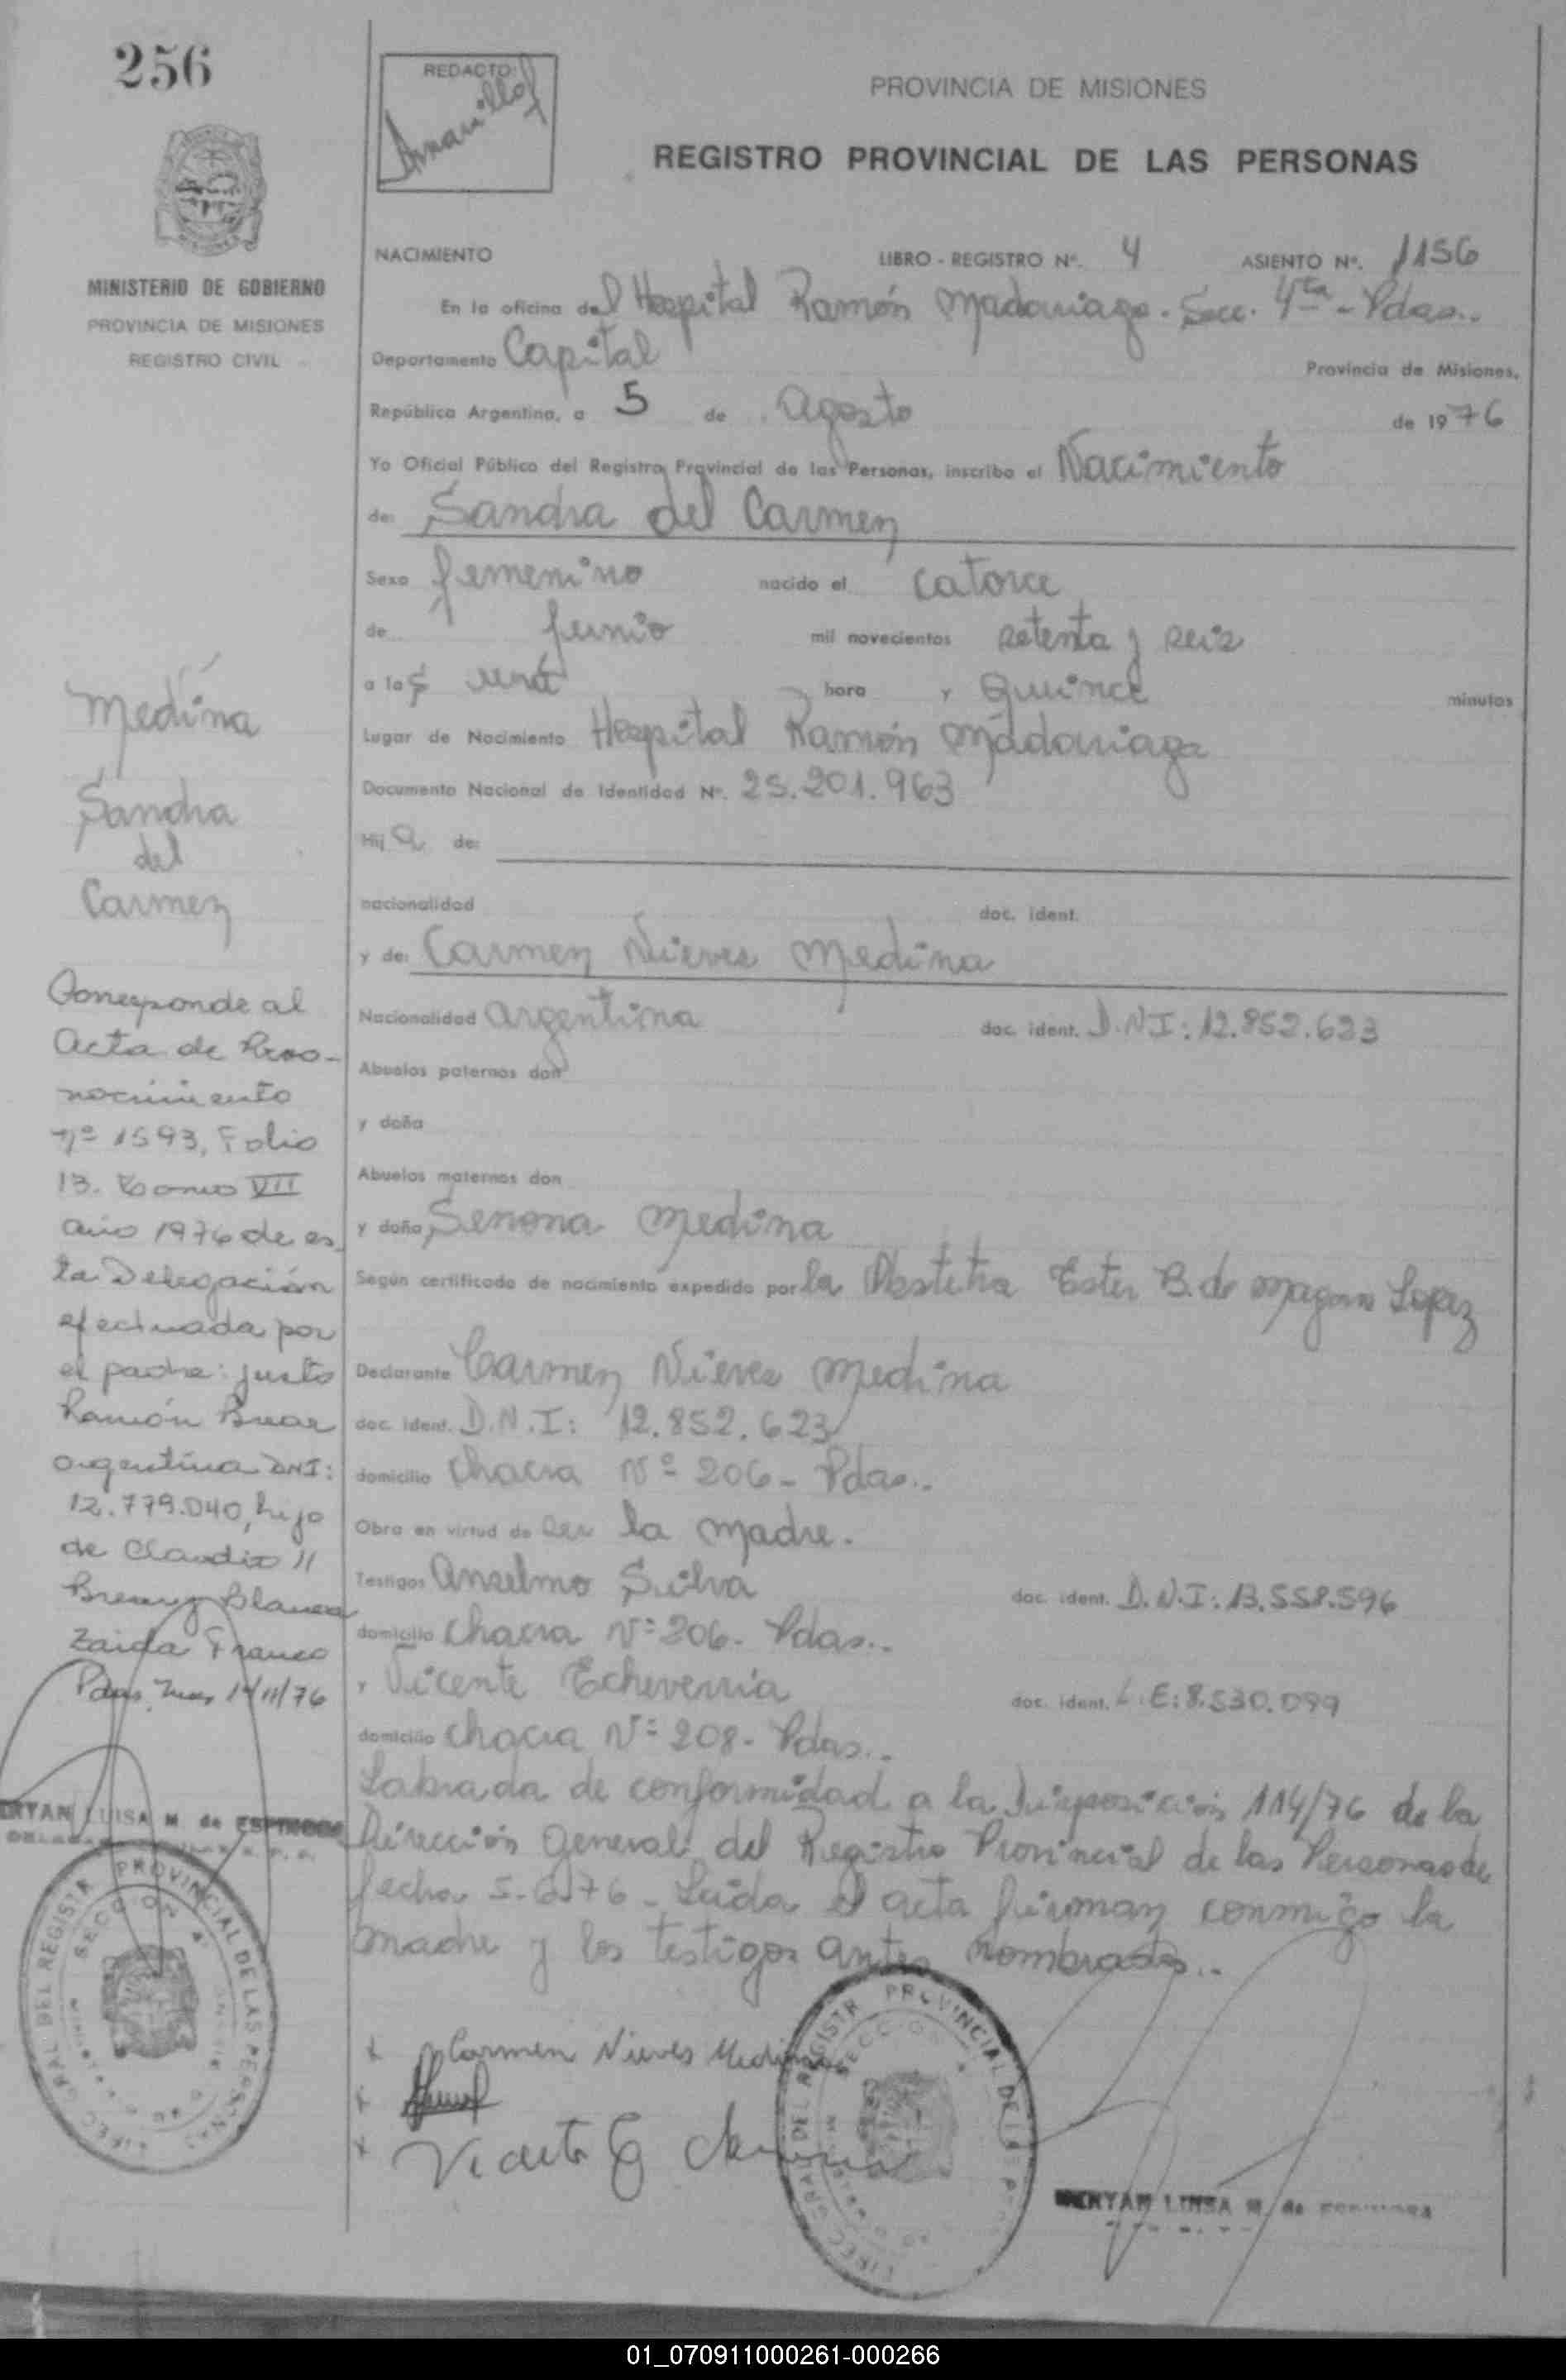 256
REDACTO:
PROVINCIA DE MISIONES
REGISTRO PROVINCIAL DE LAS PERSONAS
MINISTERIO DE GOBIERNO
PROVINCIA DE MISIONES
REGISTRO CIVIL
NACIMIENTO LIBRO - REGISTRO Nº. 4 ASIENTO Nº. 1156
En la oficina del Hospital Ramón Madariaga. Secc. 4ta - Pdas..
Departamento Capital Provincia de Misiones,
República Argentina, a 5 de Agosto de 1976
Yo Oficial Público del Registro Provincial de las Personas, inscribo el Nacimiento
de: Sandra del Carmen
Sexo femenino nacido el catorce
de junio mil novecientos setenta y seis
a las una hora y Quince minutos
Lugar de Nacimiento Hospital Ramón Madariaga
Documento Nacional de Identidad Nº. 25.201.963
Hija de:
nacionalidad doc. ident.
y de: Carmen Nieves Medina
Nacionalidad argentina doc. ident. D.N.I: 12.852.623
Abuelos paternos don
y doña
Abuelos maternos don
y doña Senona Medina
Según certificado de nacimiento expedido por la Obstetra Ester B. de Lopez
Declarante Carmen Nieves Medina
doc. ident. D.N.I: 12.852.623
domicilio Chacra Nº 206 - Pdas..
Obra en virtud de ser la madre.
Testigos Anselmo Silva doc. ident. D.N.I: 13.558.596
domicilio Chacra Nº 206 - Pdas..
y Vicente Echeverria doc. ident. L.E: 8.530.099
domicilio Chacra Nº 208 - Pdas..
Labrada de conformidad a la Disposición 114/76 de la
Dirección General del Registro Provincial de las Personas de
fecha 5-6-76 - Leida el acta firman conmigo la
madre y los testigos antes nombrados..
Carmen Nieves Medina
Medina
Sandra
del
Carmen
Corresponde al
Acta de Reco-
nocimiento
nº 1593, Folio
13. Tomo VII
año 1976 de es
ta Delegación
efectuada por
el padre: Justo
Ramón
argentina DNI:
12.779.040, hijo
de Claudio
y Blanca
Zaida Franco
Pdas,
LUISA M. de
DIREC GRAL DEL REGISTR PROVINCIAL DE LAS PERSONAS
SECCION 4ª
DIREC GRAL DEL REGISTR PROVINCIAL DE LAS
SECCION
LUISA M. de
01_070911000261-000266